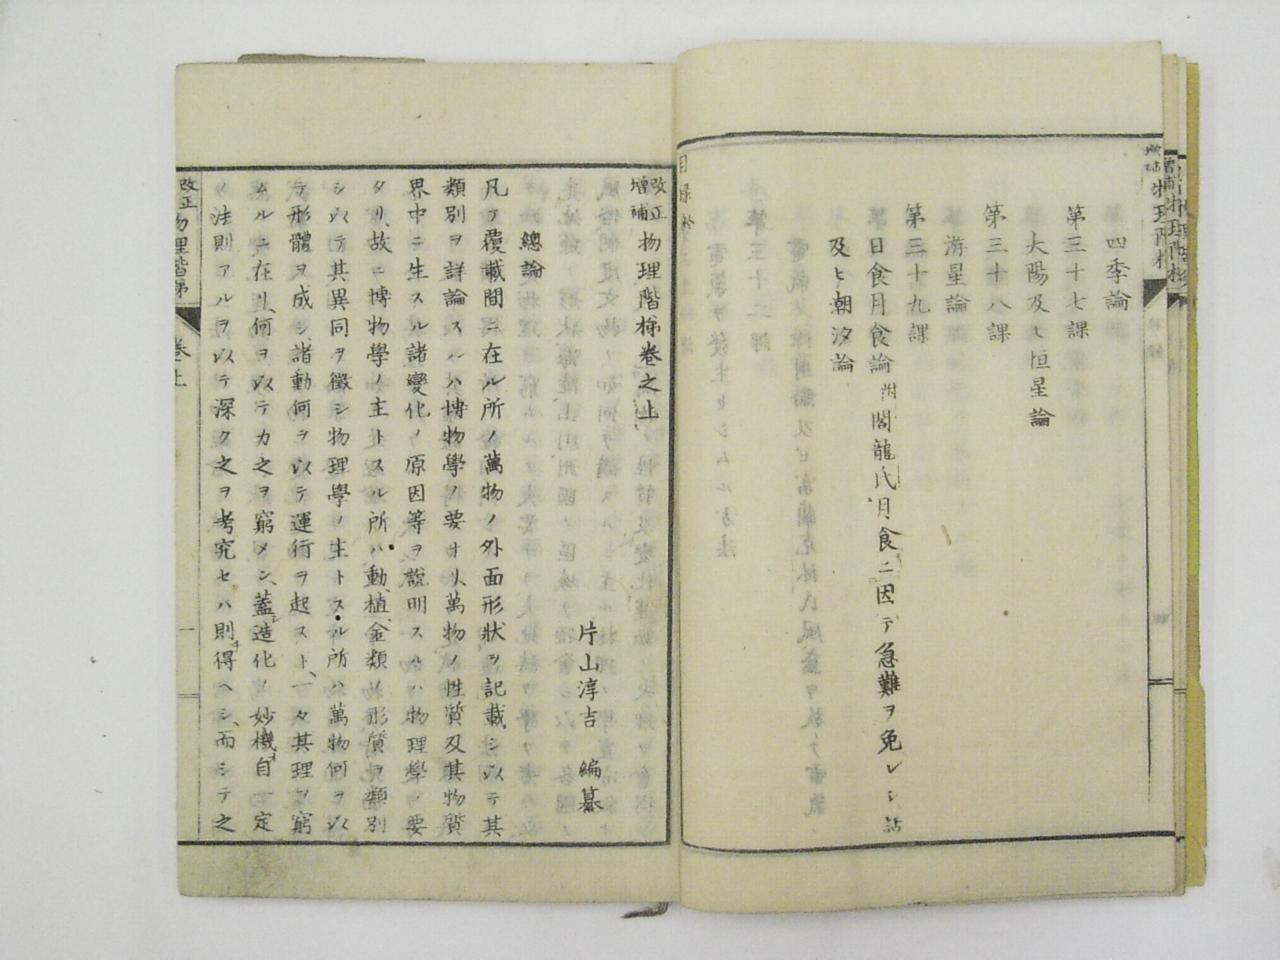 四季論
第三十七課
大陽及ヒ恒星論
第三十八課
游星論
第三十九課
日食月食論 附 閣龍氏月食ニ因テ急難ヲ免レシ話
及ヒ潮汐論
目録終
改正増補物理階梯卷之上
片山淳吉 編纂
總論
凡ソ覆載間ニ在ル所ノ萬物ノ外面形状ヲ記載シ以テ其
類別ヲ詳論スルハ博物學ノ要ナリ萬物ノ性質及其物質
界中ニ生スル諸變化ノ原因等ヲ說明スルハ物理學ノ要
タリ、故ニ博物學ノ主トスル所ハ動植金類ノ形質ヲ類別
シ以テ其異同ヲ徵シ物理學ノ主トスル所ハ萬物何ヲ以
テ形體ヲ成シ、諸動何ヲ以テ運行ヲ起スト、一々其理ヲ窮
ムルニ在リ、何ヲ以テカ之ヲ窮メン、蓋造化ノ妙機自一定
ノ法則アルヲ以テ深ク之ヲ考究セハ則得ヘシ、而シテ之
改正物理階梯 卷上